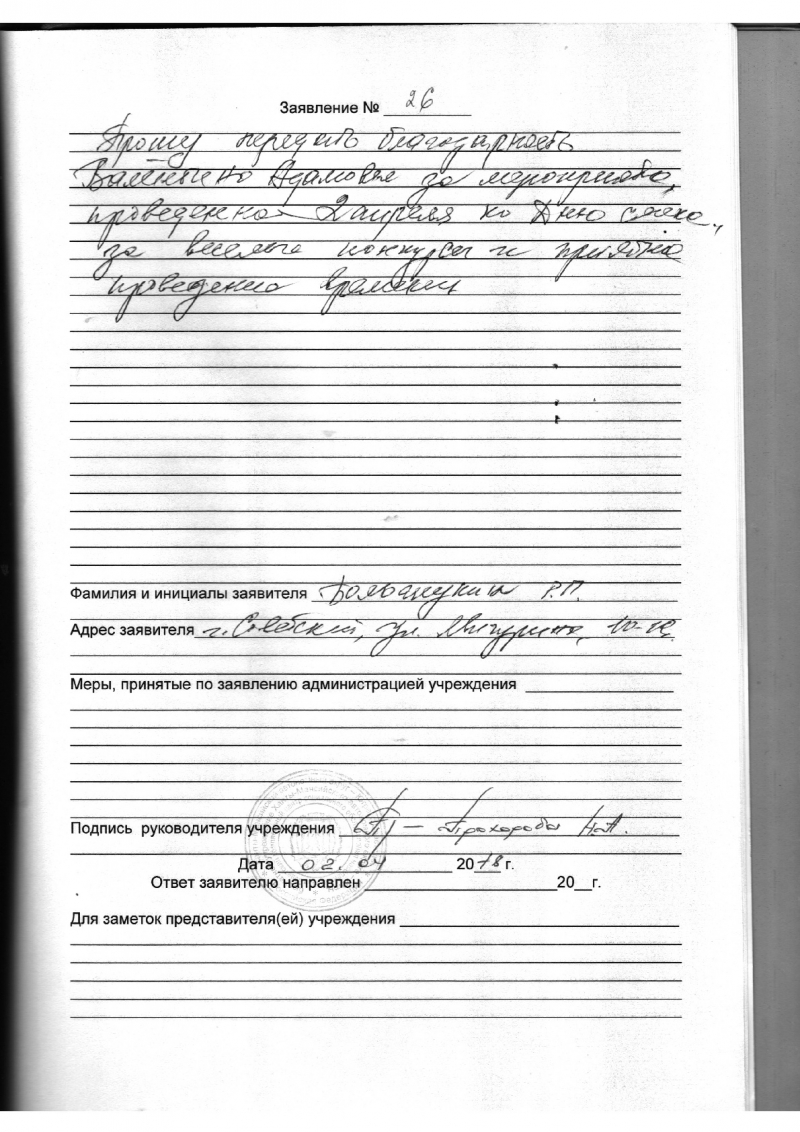 Заявление № 26
Прошу передать благодарность
Валентине Адамовне за мероприятие,
проведенное 2 апреля ко Дню смеха,
за веселые конкурсы и приятное
проведение времени
Фамилия и инициалы заявителя Р.П.
Адрес заявителя г. Советский, ул. Мичурина, 10-
Меры, принятые по заявлению администрацией учреждения
Подпись руководителя учреждения — Прохорова Н.А.
Дата 02.04 2018 г.
Ответ заявителю направлен 20__г.
Для заметок представителя(ей) учреждения